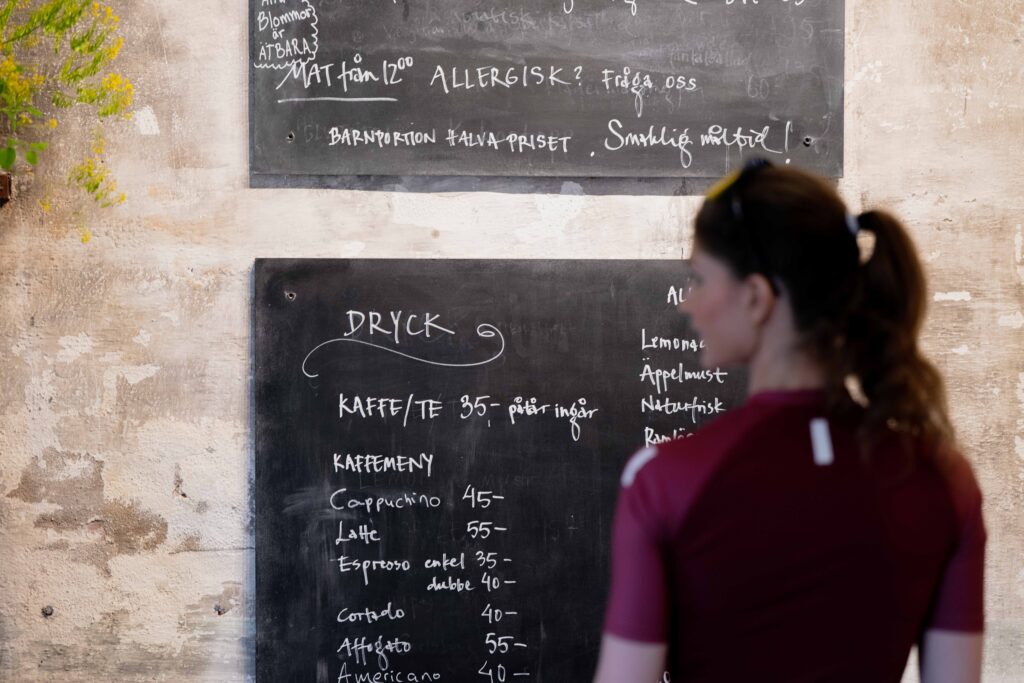 Blommor
är
ÄTBARA
MAT från 12⁰⁰ ALLERGISK? Fråga oss
BARNPORTION HALVA PRISET. Smaklig måltid!
DRYCK
KAFFE/TE 35:- påtår ingår
KAFFEMENY
Cappuchino 45-
Latte 55-
Espresso enkel 35-
dubbe 40-
Cortado 40-
Affogato 55-
Americano 40-
Äppelmust
Naturfrisk